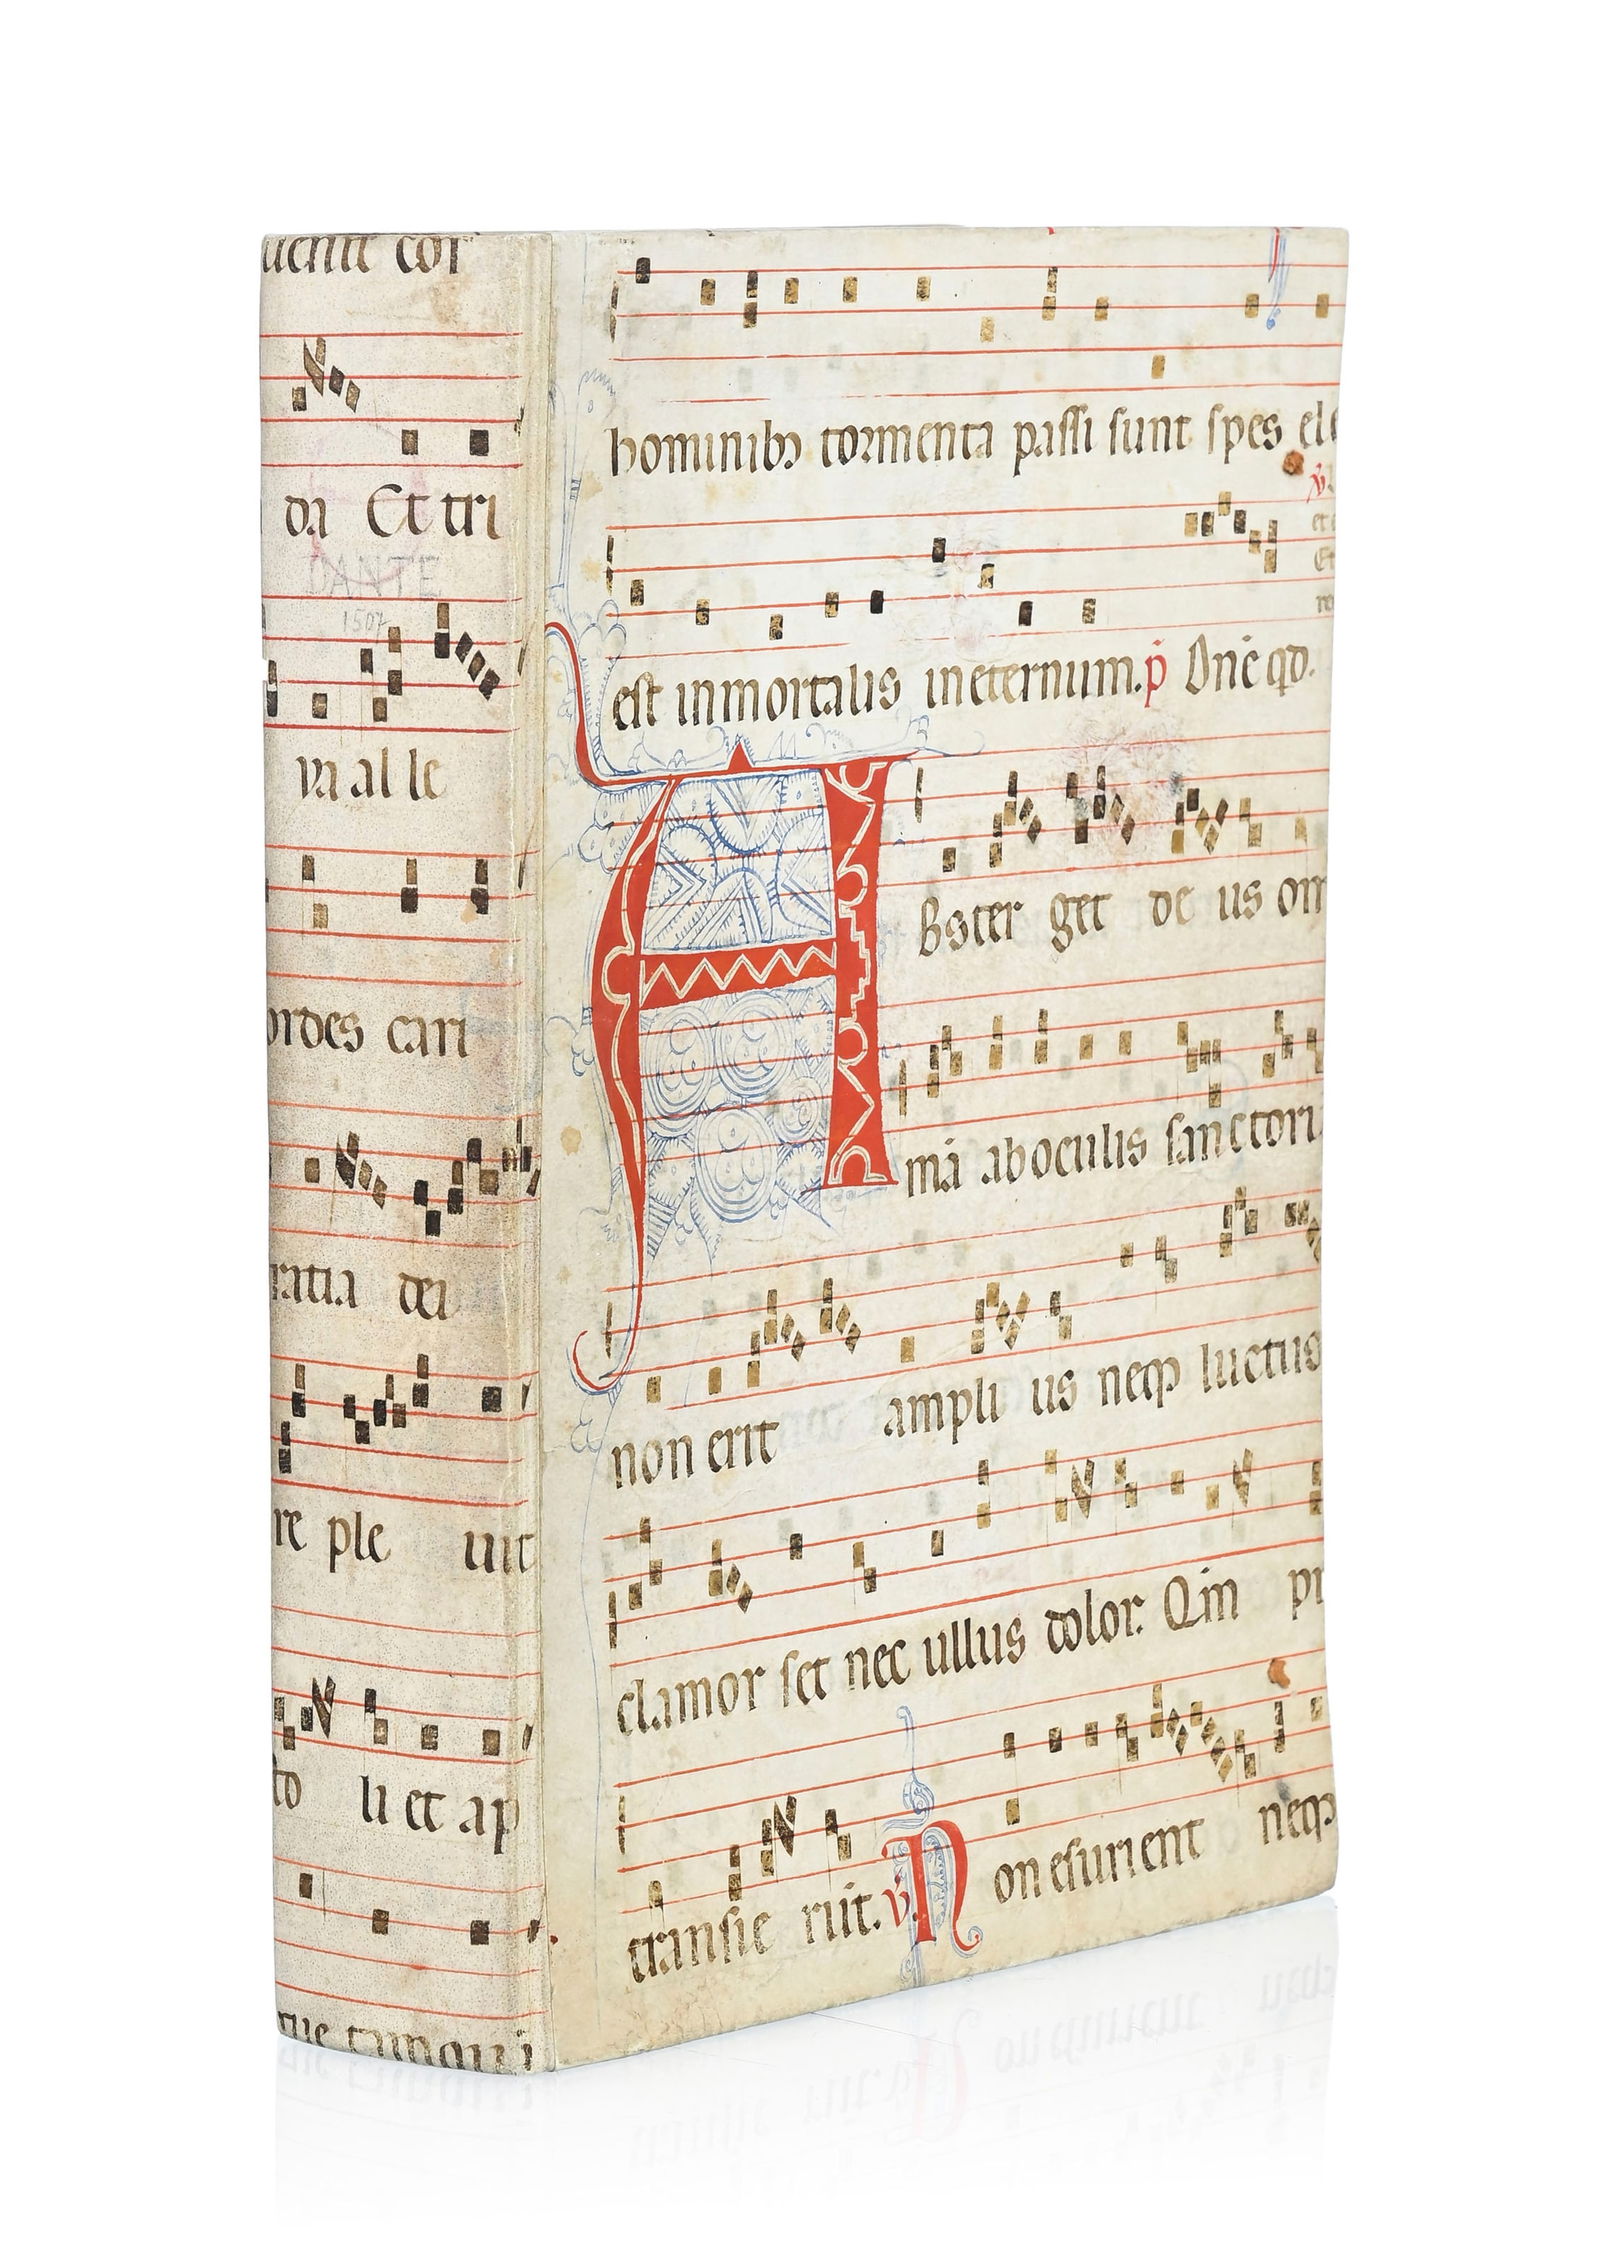 cor
da Et tri
DANTE
1507
va al le
ordes cari
ratia dei
re ple uit
to li et ap
hominibꝫ tormenta passi sunt spes ele
est inmortalis in eternum. p̄ Dn̄e qd.
Abster get de us om
mā ab oculis sanctoru
non erit ampli us neqꝫ luctus
clamor set nec ullus dolor. Qm̄ pri
transie rūt. v̄. Non esurient neqꝫ